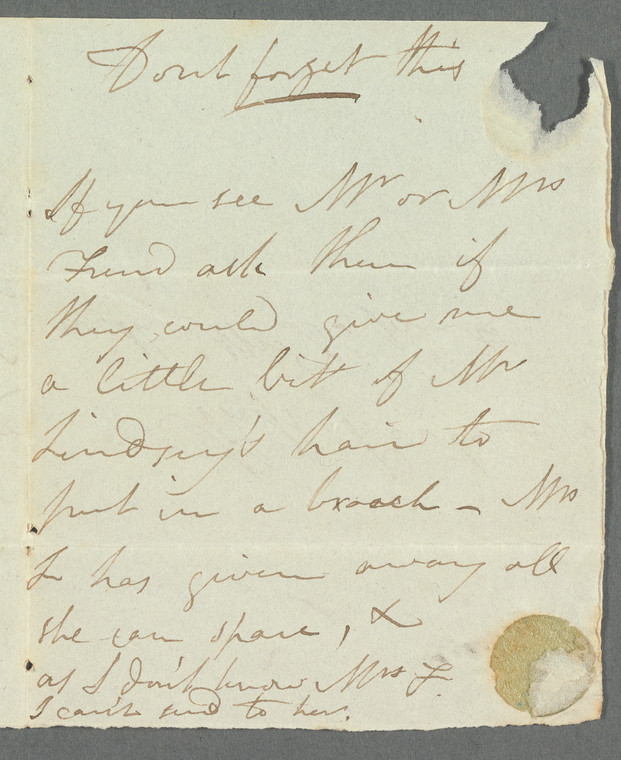 Dont forget this
If you see Mr or Mrs
Frend ask them if
they could give me
a little bit of Mr
Lindsey's hair to
put in a broach – Mrs
L has given away all
she can spare, &
as I don't know Mrs F.
I can't send to her.